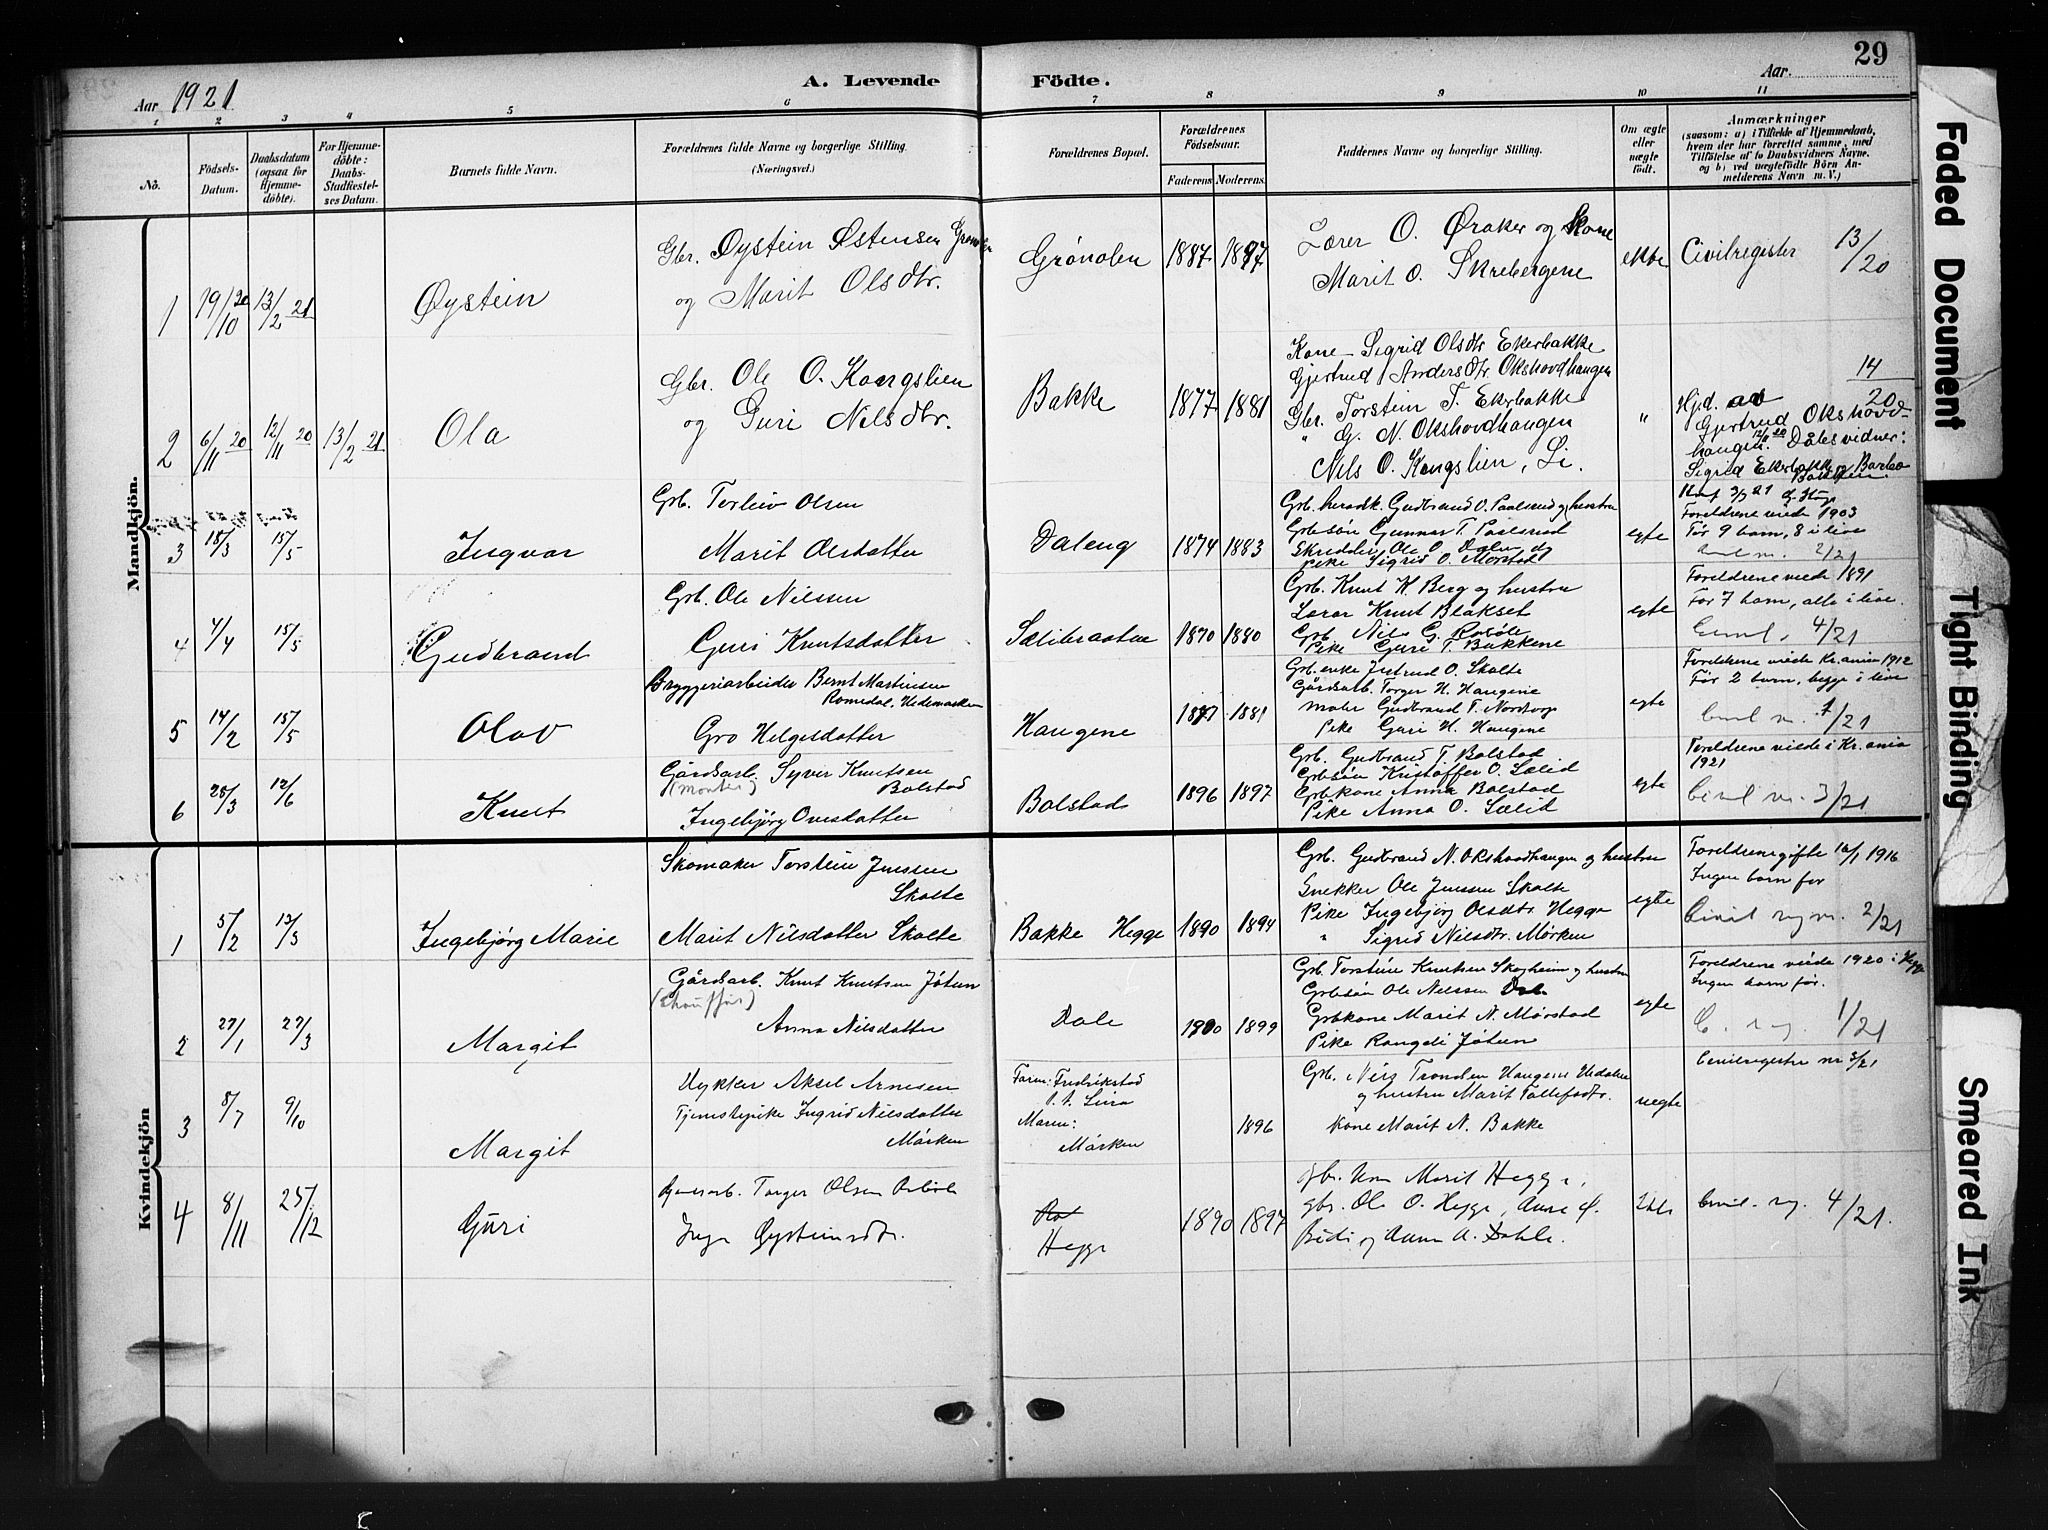 29
Aar 1921
A. Levende Födte.
Aar.
1 2 3 4 5 6 7 8 9 10 11
No.
Födsels-Datum.
Daabsdatum (ogsaa for Hjemme-döbte).
For Hjemme-döbte: Daabs-Stadfæstel-ses Datum.
Barnets fulde Navn.
Forældrenes fulde Navne og borgerlige Stilling. (Næringsvei.)
Forældrenes Bopæl.
Forældrenes Födselsaar.
Faderens. Moderens.
Faddernes Navne og borgerlige Stilling.
Om ægte eller uægte født.
Anmærkninger
(saasom: a) i Tilfælde af Hjemmedaab, hvem der har forrettet samme, med Tilföielse af to Daabsvidners Navne, og b) ved uægtefödte Börn An-melderens Navn m. V.)
Mandkjön.
1 19/10 20 13/2 21 Øystein
Gbr. Øystein Østensen Grønolen
og Marit Olsdtr.
Grønolen 1887 1897
Lærer O. Øraker og Kone
Marit O. Skrebergene
ekte Civilregister 13/20
2 6/11 20 12/11 20 13/2 21 Ola
Gbr. Ole O. Kongslien
og Guri Nilsdtr.
Bakke 1877 1881
Kone Sigrid Olsdtr Ekerbakke
Gjertrud Andersdtr Okshovdhaugen
Gbr. Torstein T. Ekerbakke
" G. N. Okshovdhaugen
Nils O. Kongslien, Li.
"
14/20
Hjd. av
Gjertrud Okshovd-
haugen. 12/11 20 Dåbsvidner:
Sigrid Ekerbakke og Barbo
Bakken
3 18/3 15/5 Ingvar
Grb. Torleiv Olsen
Marit Olsdatter
Daleng 1874 1883
Grb. herredk. Gudbrand O. Paalsrud og hustru
Grbsøn Gunnar T. Paalsrud
Skredder Ole O. Dalen og
Pike Sigrid O. Mørstad
egte
Foreldrene viede 1903
Før 9 barn, 8 i live
Civil n. 2/21
4 4/4 15/5 Gudbrand
Grb. Ole Nilsen
Guri Knutsdatter
Sælibraaten 1870 1880
Grb. Knut K. Berg og hustru
Lærar Knut Blakset
Grb. Nils G. Robøle
Pike Guri T. Bakkene
egte
Foreldrene viede 1891
Før 7 barn, alle i live.
Civil. 4/21
5 14/2 15/5 Olav
Bryggeriarbeider Bernt Martinsen
Romedal, Hedemarken
Gro Helgesdatter
Haugene 1881
Grb. enke Jertrud O. Skolte
Gårdsarb. Torger H. Haugene
Maler Gudbrand T. Nordtorp
Pike Guri H. Haugene
egte
Foreldrene viede Kr.ania 1912
Før 2 barn, begge i live
Civil n. 7/21
6 28/3 12/6 Knut
Gårdsarb. Syver Knutsen
(montør) Bolstad
Ingebjørg Ovesdatter
Bolstad 1896 1897
Grb. Gudbrand T. Bolstad
Grbsøn Kristoffer O. Sælid
Grbkone Anna Bolstad
Pike Anna O. Sælid
egte
Foreldrene viede i Kr.ania
1921
Civil nr. 3/21
Kvindekjön
1 5/2 13/3 Ingebjørg Marie
Skomaker Torstein Jenssen
Skolte
Marit Nilsdatter Skolte
Bakke Hegge 1890 1894
Grb. Gudbrand N. Okshovdhaugen og hustru
Snekker Ole Jenssen Skolte
Pike Ingebjørg Olsdtr. Hegge
" Sigrid Nilsdtr. Mørken
egte
Foreldrene gifte 16/1 1916
Ingen barn før
Civil reg nr. 2/21
2 27/1 27/3 Margit
Gårdsarb. Knut Knutsen Jøtun
(Chauffør)
Anna Nilsdatter
Dale 1899
Grb. Torstein Knutsen Skogheim og hustru
Grbsøn Ole Nilssen Dale
Grbkone Marit N. Mørstad
Pike Rangdi Jøtun
egte
Foreldrene viede 1920 i Hegge
Ingen barn før.
C. reg. 1/21
3 8/7 9/10 Margit
Dykker Aksel Arnesen
Tjenestepike Ingrid Nilsdatter
Mørken
Faren: Fredrikstad
Moren:
Mørken
1896
Grb. Nils Tronden Haugene Uedalen
og hustru Marit Tollefsdtr.
Kone Marit N. Bakke
uegte
Civilregister nr 3/21
4 8/11 25/12 Guri
Torger Olsen
Inga Øysteinsdtr.
Hegge 1890 1897
gbr. Kone Marit Hegge,
gbr. Ole O. Hegge, Anne Ø.
og Anna A. Dahle.
Civil. reg. 4/21.
Faded Document
Tight Binding
Smeared Ink